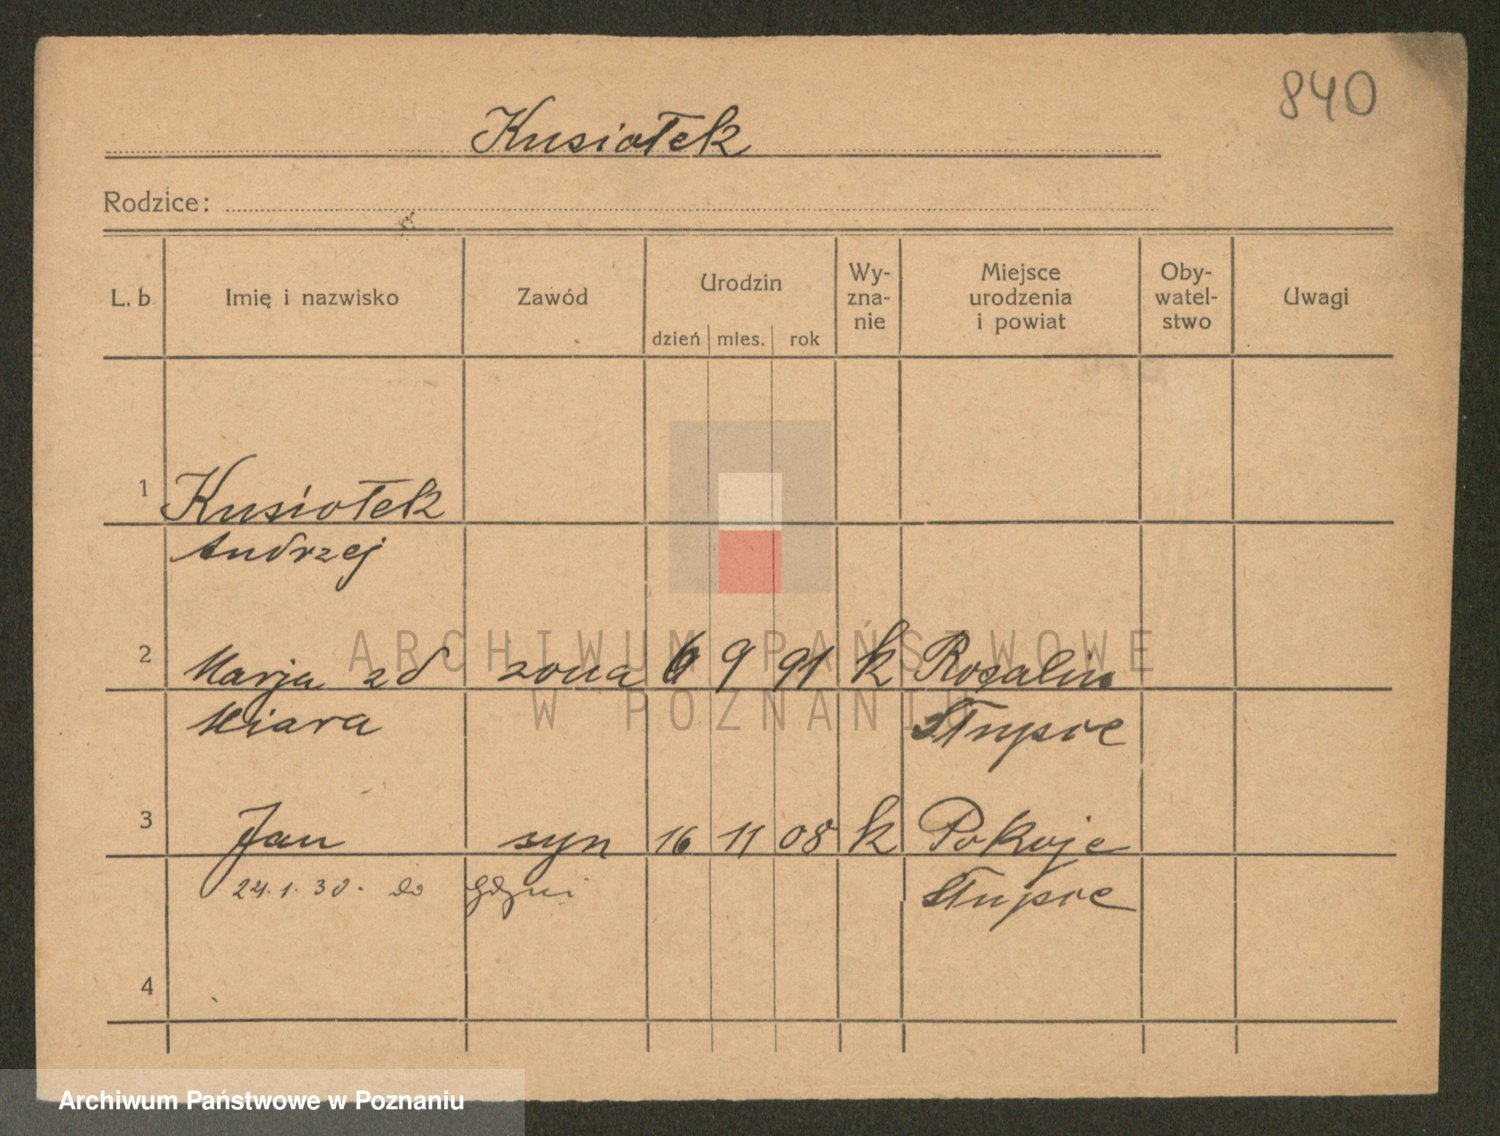 840
Kusiołek
Rodzice:
L. b Imię i nazwisko Zawód Urodzin Wy-zna-nie Miejsce urodzenia i powiat Oby-watel-stwo Uwagi
dzień mies. rok
1 Kusiołek
Andrzej
2 Marja zd żona 6 9 91 k Rozalin
Miara Słupce
3 Jan syn 16 11 08 k Pokoje
24.1.30. do Gdyni Słupce
4
ARCHIWUM PAŃSTWOWE
W POZNANIU
Archiwum Państwowe w Poznaniu